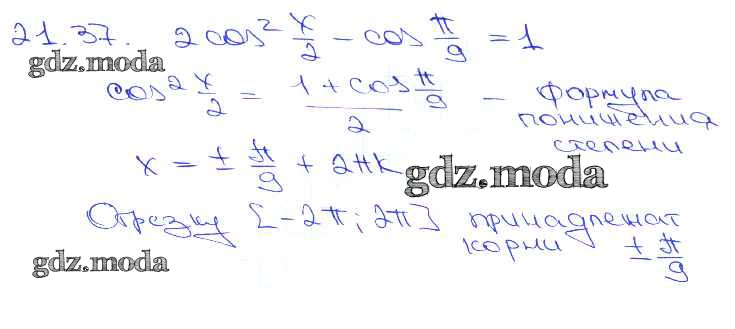 21.37. 2cos² x/2 − cos π/9 = 1
gdz.moda
cos² x/2 = (1 + cos π/9)/2 − формула
понижения
степени
x = ± π/9 + 2πk
gdz.moda
Отрезку [−2π; 2π] принадлежат
корни ± π/9
gdz.moda